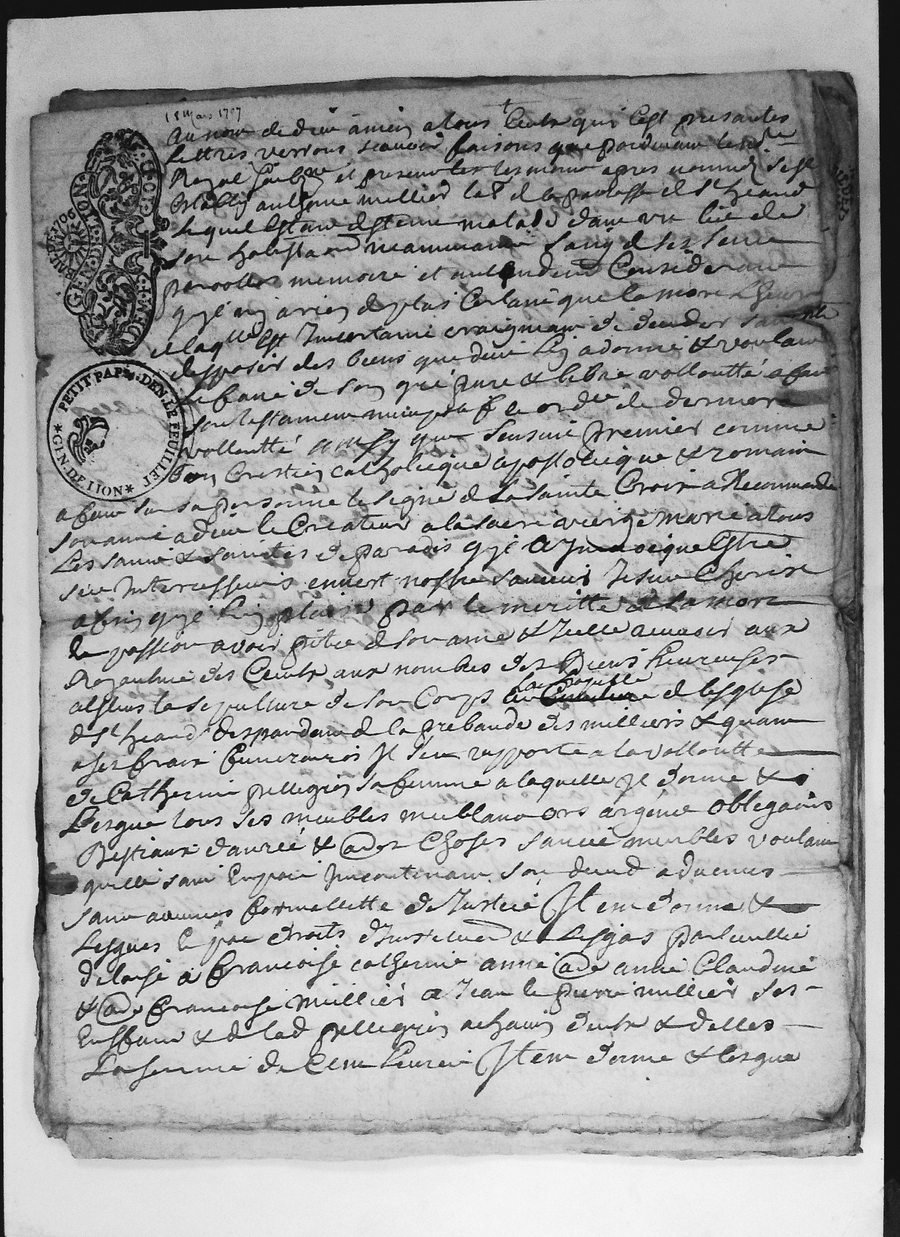 18 Mars 1707
Au nom de dieu amen a tous Ceux qui Ces presantes
lettres verrons scavoir faisons que pardevant le no.re
Royal soub.ne et presens les tesmoins apres nommés
estably anthoine millier lab.r de la parroisse de St heand
lequel estant detenu malade dans un lit de
son habita.on neammoins sain de ses sens
parolles memoire et entendem.t Considerant
qu'il n'y a rien de plus Certain que la mort L'heure
et laq.lle est Incertaine craignant de deceder sans
disposer des biens que dieu luy a donné & voulant
a fait de son gré pure & libre vollontté a fait
son testament nuncupatif et ord.ce de derniere
vollontté ainsy que sensuit premier comme
bon Crestien catholicque apostolicque & romain
a fait sur sa personne le signe de La sainte Croix a Recommandé
son ame a dieu le Createur a la sacrée vierge marie a tous
Les saints & saintes de paradis qu'il a Invoqué Estre
ses Intercesseurs envert nostre sauveur Jesus Christ
afin qu'il luy plaise par le meritte de sa mort
& passion avoir pitié de son ame & Icelle recevoir aux
Royaulme des Cieux aux nombres des Biens heureuses
eslisant la sepulture de son Corps la chapelle de lesglise
de St heand dependant de la prebande des milliers & quant
a ses frais funeraires Il s'en rapporte a la vollontte
de Catherine pellegrin sa femme a laquelle Il donne &
Lesgue tous ses meubles meublans ors argent obligations
Bestiaux danrée & autres Choses sancé meubles voulant
quelle sans Empare Incontinant son deced advenus
sans aucunes formallitte de Justice Item donne &
Lesgues Et par droits d'Institution & Legas particullié
delaisse a francoise catherine anne autre anne Claudine
& autre francoise millier a Jean & pierre millier ses
Enffans & de lad pellegrin a chacun d'eux & d'elles
La somme de Cent Livres Item donne & lesgue
GEN. DE LION
PETIT PAP. DEN. LE FEUILLET
GEN. DE LION